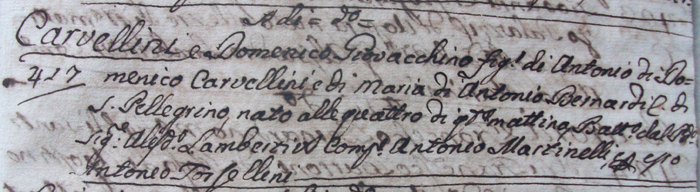 A di = do =
Carvellini e Domenico Giovacchino figo. di Antonio di Do-
417 menico Carvellini e di Maria di Antonio Bernardi C. di
S. Pellegrino, nato alle quattro di qta. mattina Batto. dal Po.
Sige. Alesso. Lambertini Compe. Antonio Martinelli, e p esso
Antonio Torsellini